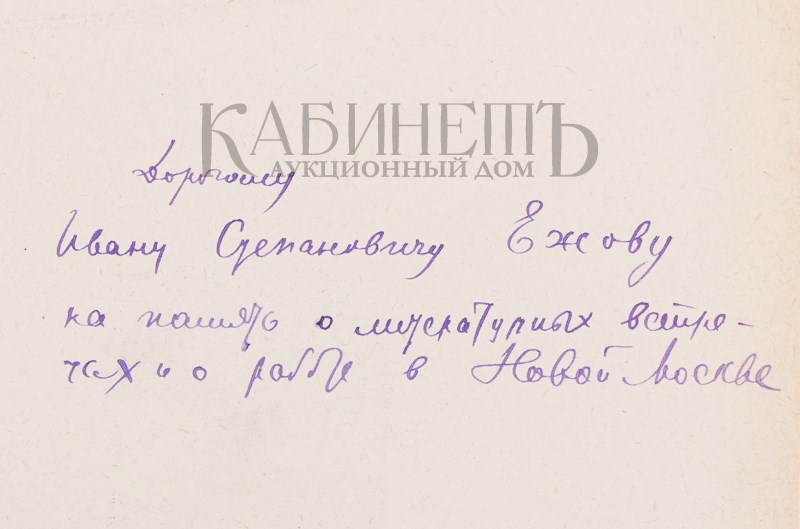 КАБИНЕТЪ
АУКЦИОННЫЙ ДОМ
Дорогому
Ивану Степановичу Ежову
на память о литературных встре-
чах и о работе в Новой Москве